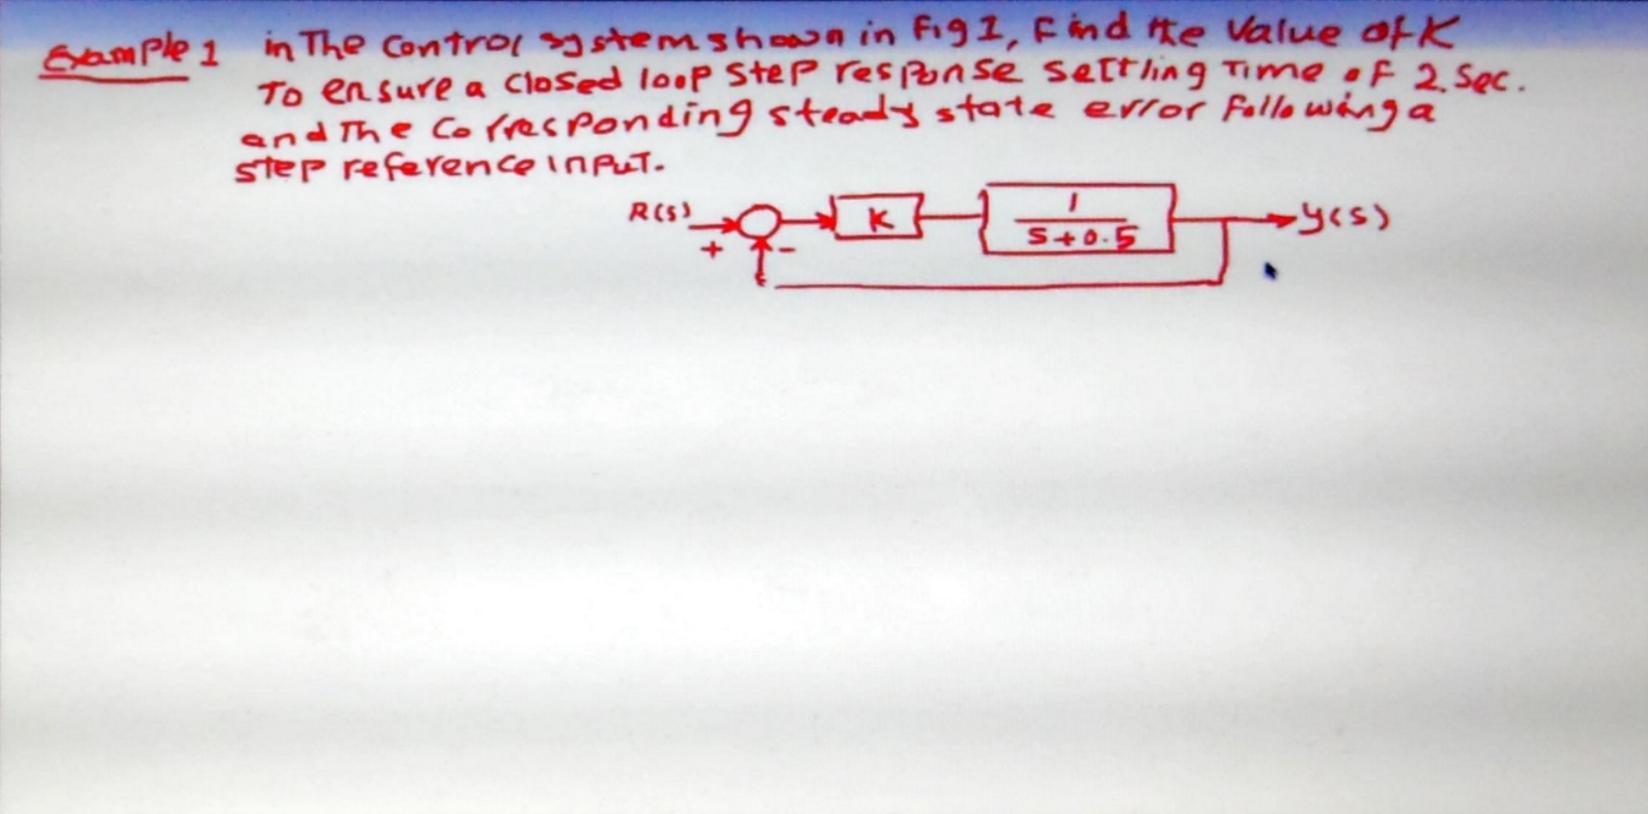 Example 1 in The Control system shown in Fig 1, Find the Value of K
To ensure a closed loop step response settling Time of 2.Sec.
and The Corresponding steady state error Following a
step reference inPuT.
R(s) + - K 1 y(s)
s+0.5